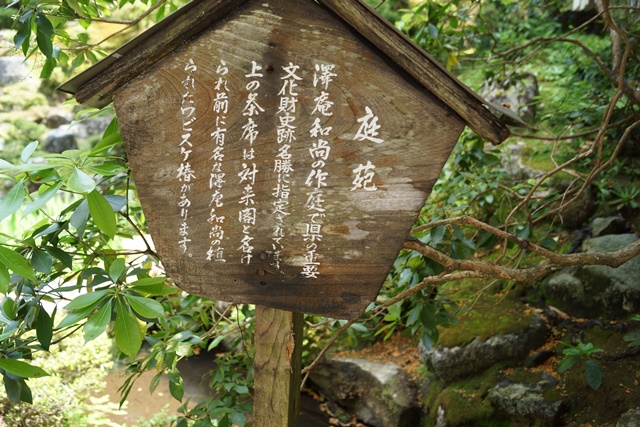 庭苑
澤庵和尚の作庭で県の重要
文化財史跡名勝に指定されています、
上の茶席は対来閣と名付
られ前に有名な澤庵和尚の植
られたワビスケ椿があります。